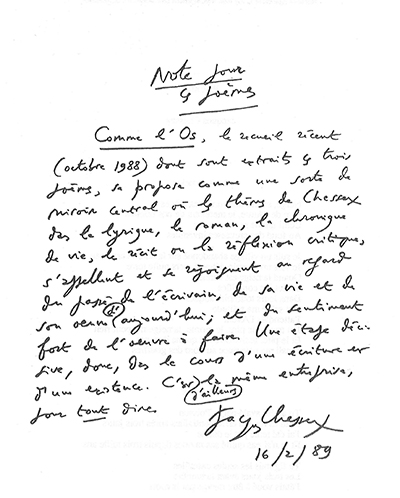 Note pour
les poèmes
Comme l'Os, le recueil récent
(octobre 1988) dont sont extraits les trois
poèmes, se propose comme une sorte de
miroir central où les thèmes de Chessex
dans le lyrique, le roman, la chronique
de vie, le récit ou la réflexion critique,
s'appellent et se rejoignent au regard
du passé de l'écrivain, de sa vie et de
son oeuvre d'aujourd'hui ; et du sentiment
fort de l'oeuvre à faire. Une étape déci-
sive, donc, dans le cours d'une écriture et
d'une existence. C'est là même entreprise,
d'ailleurs
pour tout dire.
Jacques Chessex
16/2/89